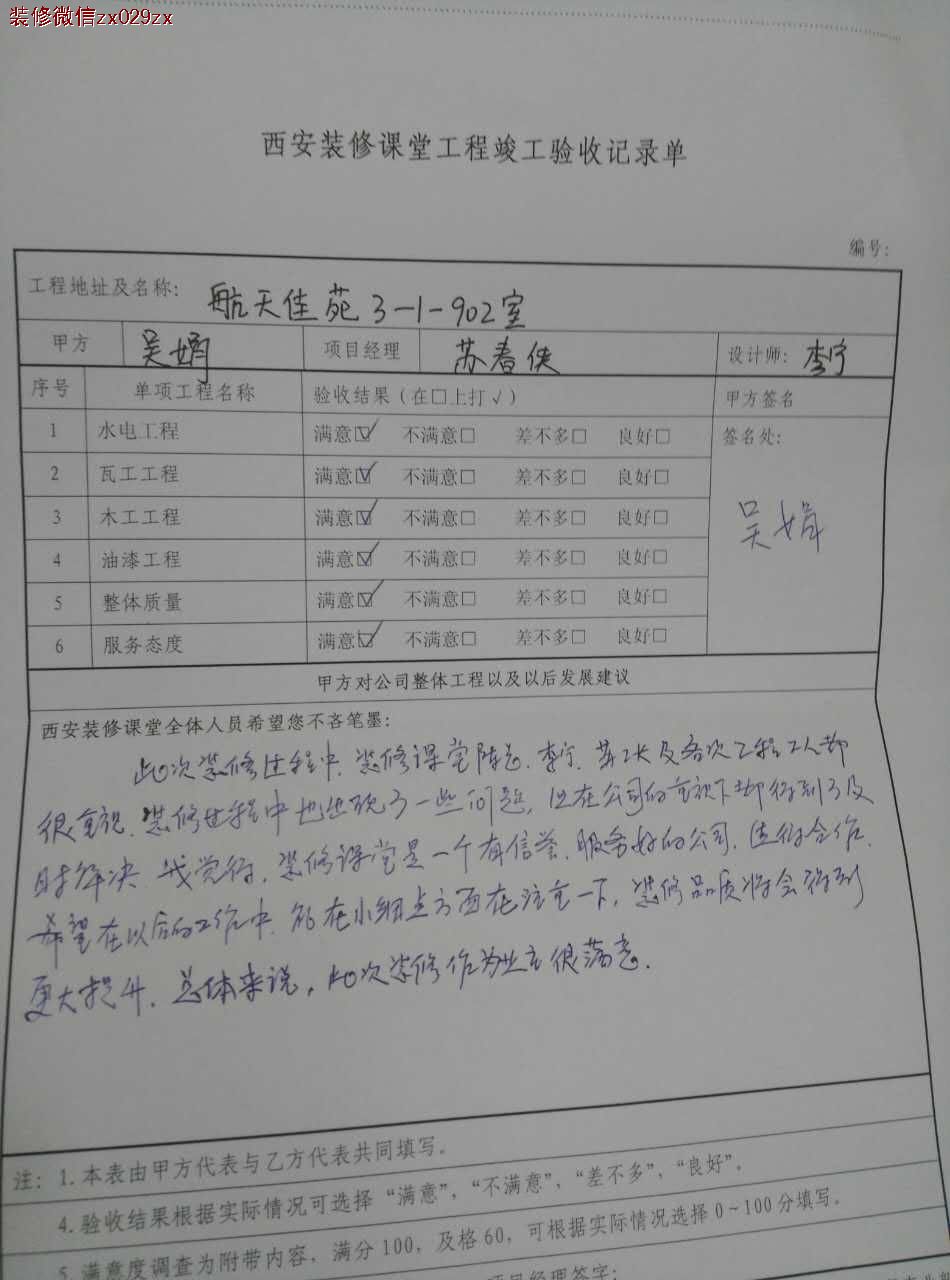 装修微信zx029zx
西安装修课堂工程竣工验收记录单
编号:
工程地址及名称: 航天佳苑3-1-902室
甲方 吴娟 项目经理 苏春侠 设计师: 李宁
序号 单项工程名称 验收结果（在□上打√） 甲方签名
1 水电工程 满意☑ 不满意□ 差不多□ 良好□ 签名处:
2 瓦工工程 满意☑ 不满意□ 差不多□ 良好□
3 木工工程 满意☑ 不满意□ 差不多□ 良好□
吴娟
4 油漆工程 满意☑ 不满意□ 差不多□ 良好□
5 整体质量 满意☑ 不满意□ 差不多□ 良好□
6 服务态度 满意☑ 不满意□ 差不多□ 良好□
甲方对公司整体工程以及以后发展建议
西安装修课堂全体人员希望您不吝笔墨:
此次装修过程中、装修课堂陈总、李宁、苏工长及各次工程工人都
很重视、装修过程中也出现了一些问题, 但在公司的重视下都得到了及
时解决 我觉得, 装修课堂是一个有信誉、服务好的公司, 值得合作.
希望在以后的工作中、能在小细点方面在注重一下, 装修品质将会得到
更大提升. 总体来说, 此次装修作为业主很满意.
注: 1.本表由甲方代表与乙方代表共同填写。
4.验收结果根据实际情况可选择“满意”，“不满意”，“差不多”，“良好”。
5.满意度调查为附带内容，满分100，及格60，可根据实际情况选择0~100分填写。
项目经理签字: